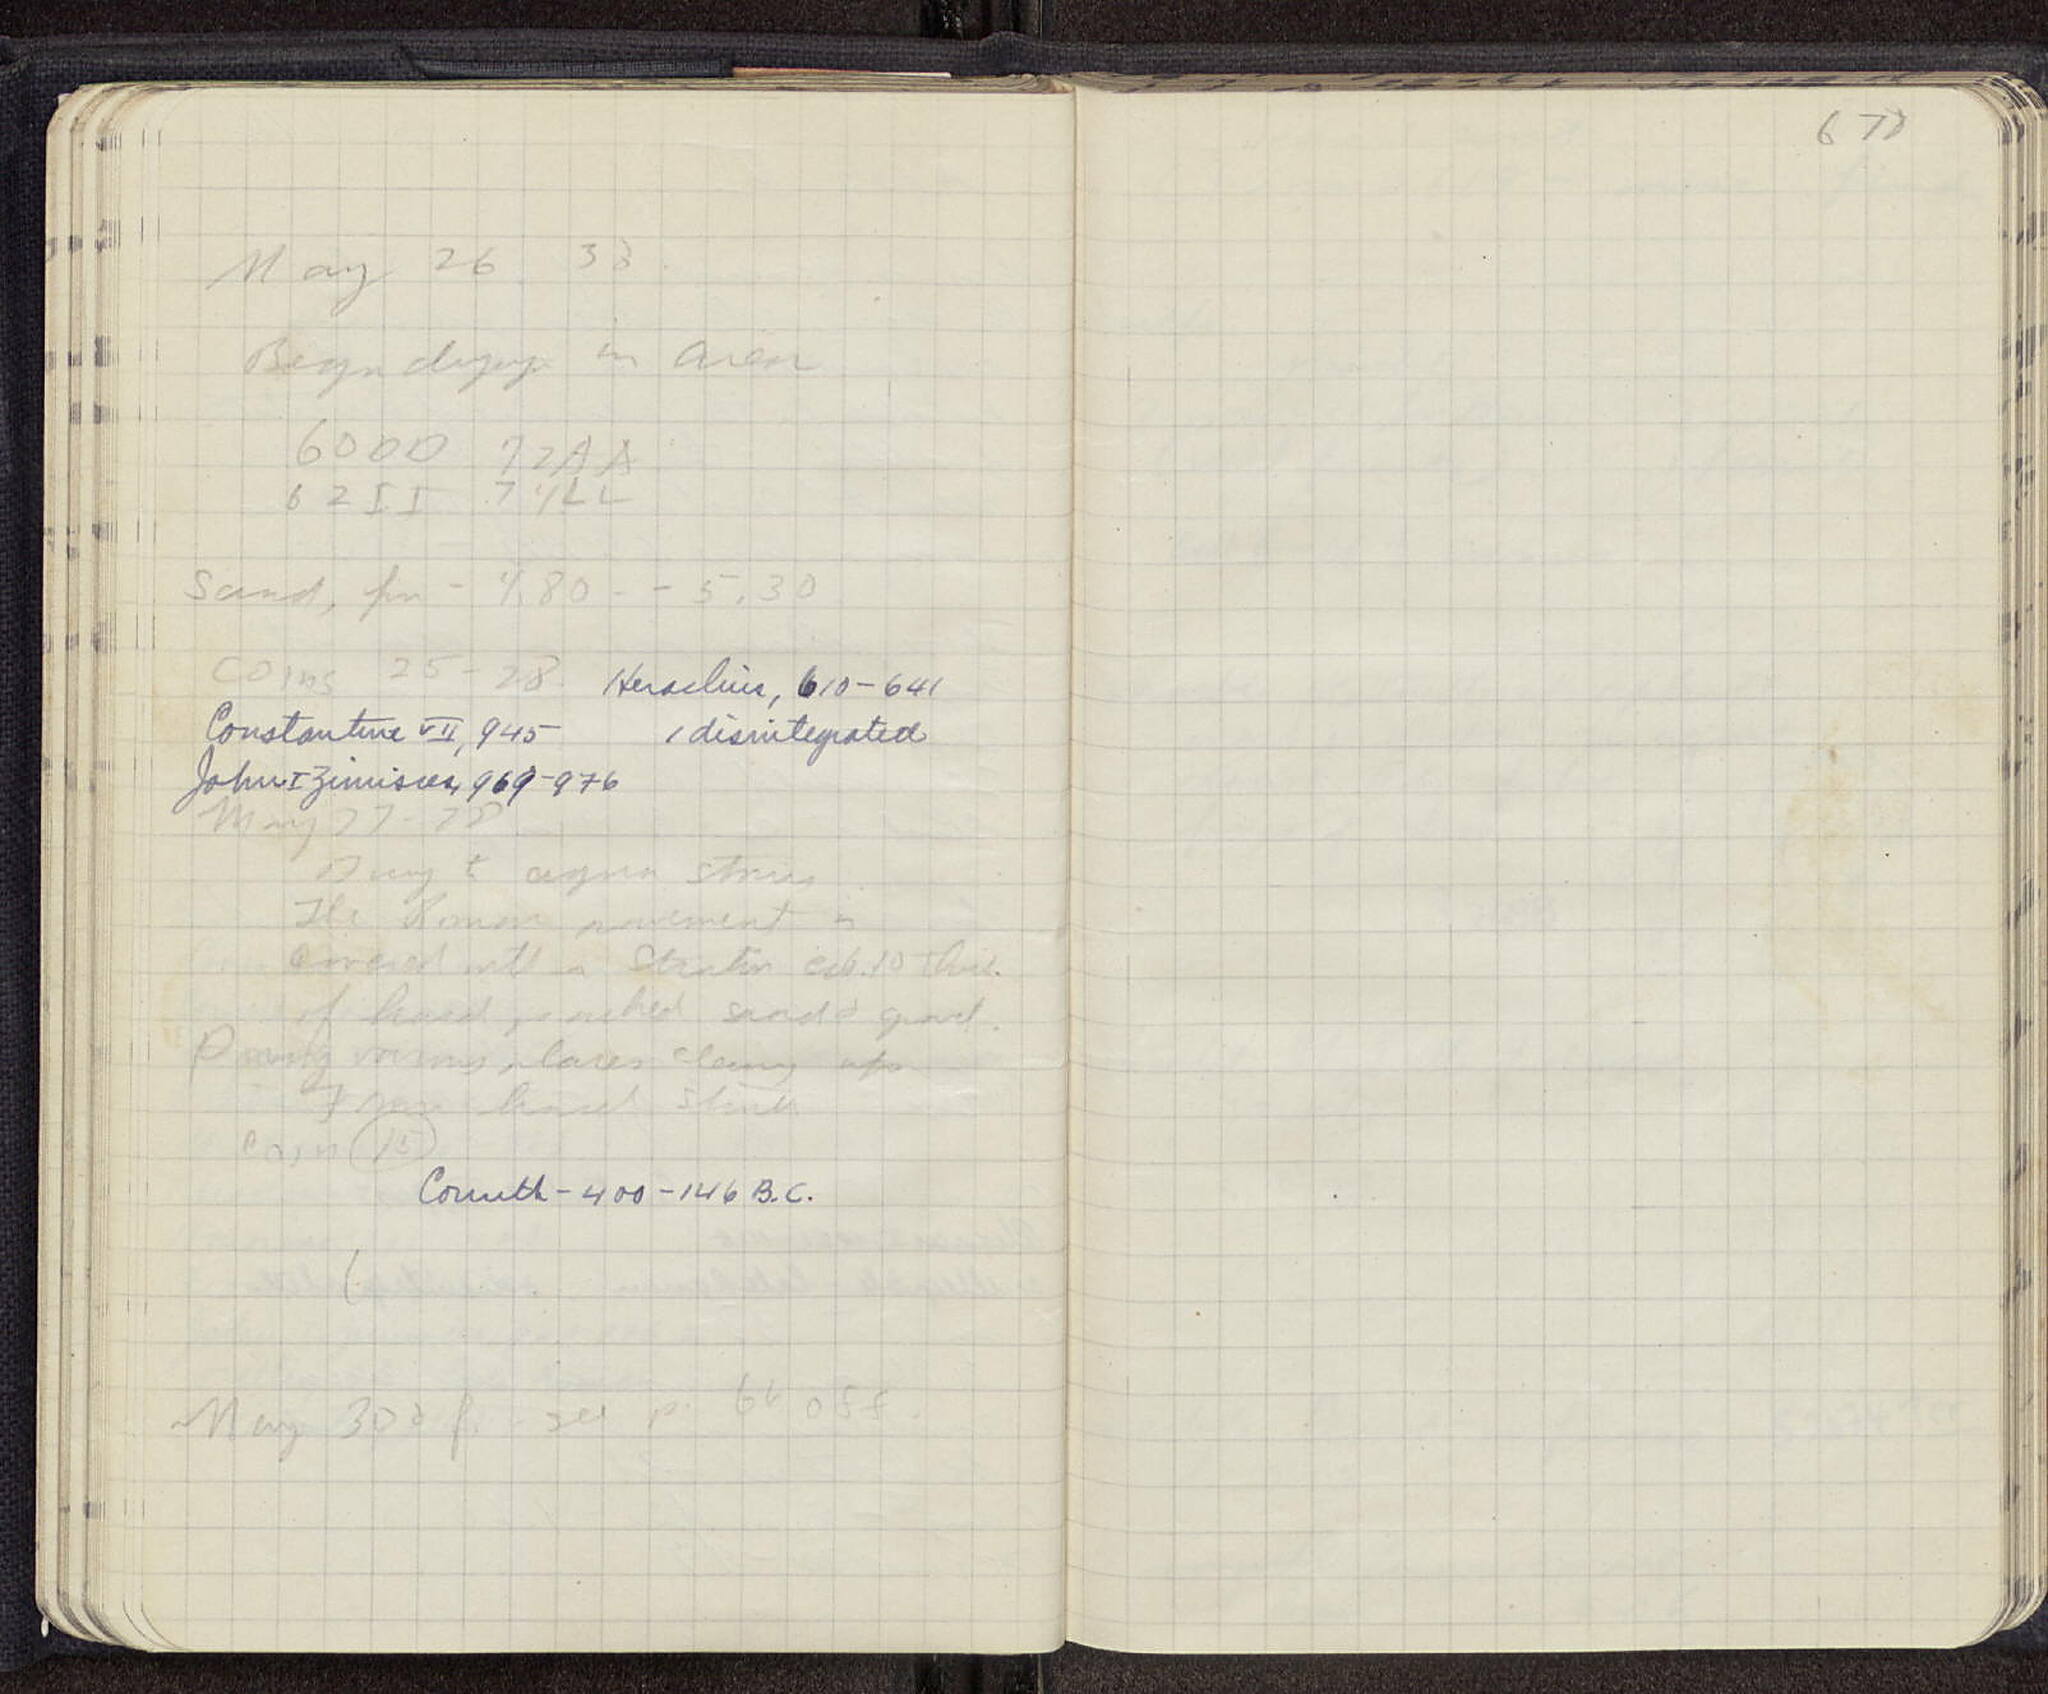 678
May 26 33
Begin digging in area
60DD 72AA
62II 74LL
Sand, fr - 4.80 - - 5.30
Coins 25-28. Heraclius, 610-641
Constantine VII, 945 1 disintegrated
John I Zimisces, 969-976
May 27-28
to agora
The Roman pavement is
covered with a stratum 10 thick
of hard packed sand & gravel.
various places cleaning up
hard
Coin 15
Corinth - 400-146 B.C.
May 30 & f. - see p. 66 off.